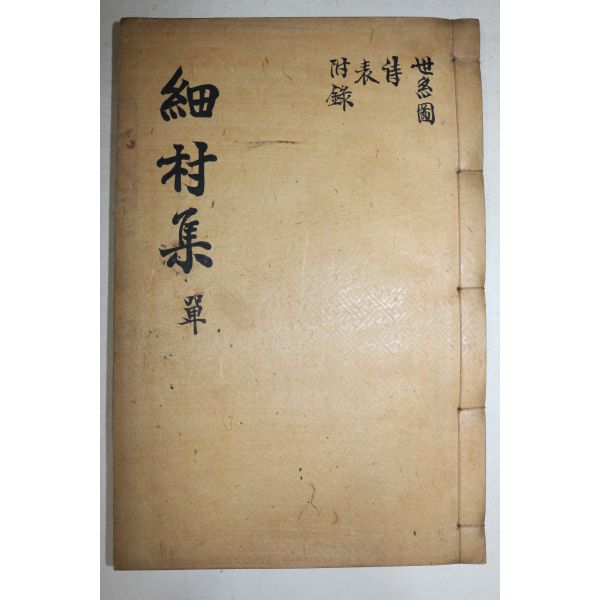 世系圖
詩
表
附錄
細村集 單